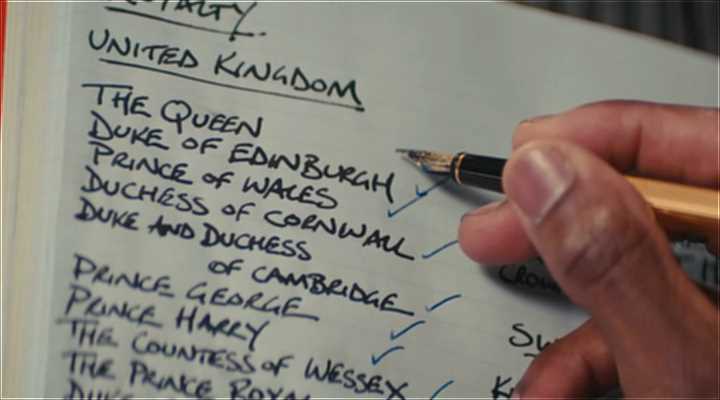 ROYALTY.
UNITED KINGDOM
THE QUEEN
DUKE OF EDINBURGH
PRINCE OF WALES
DUCHESS OF CORNWALL
DUKE AND DUCHESS
OF CAMBRIDGE
PRINCE GEORGE
PRINCE HARRY
THE COUNTESS OF WESSEX
THE PRINCE
DUKE